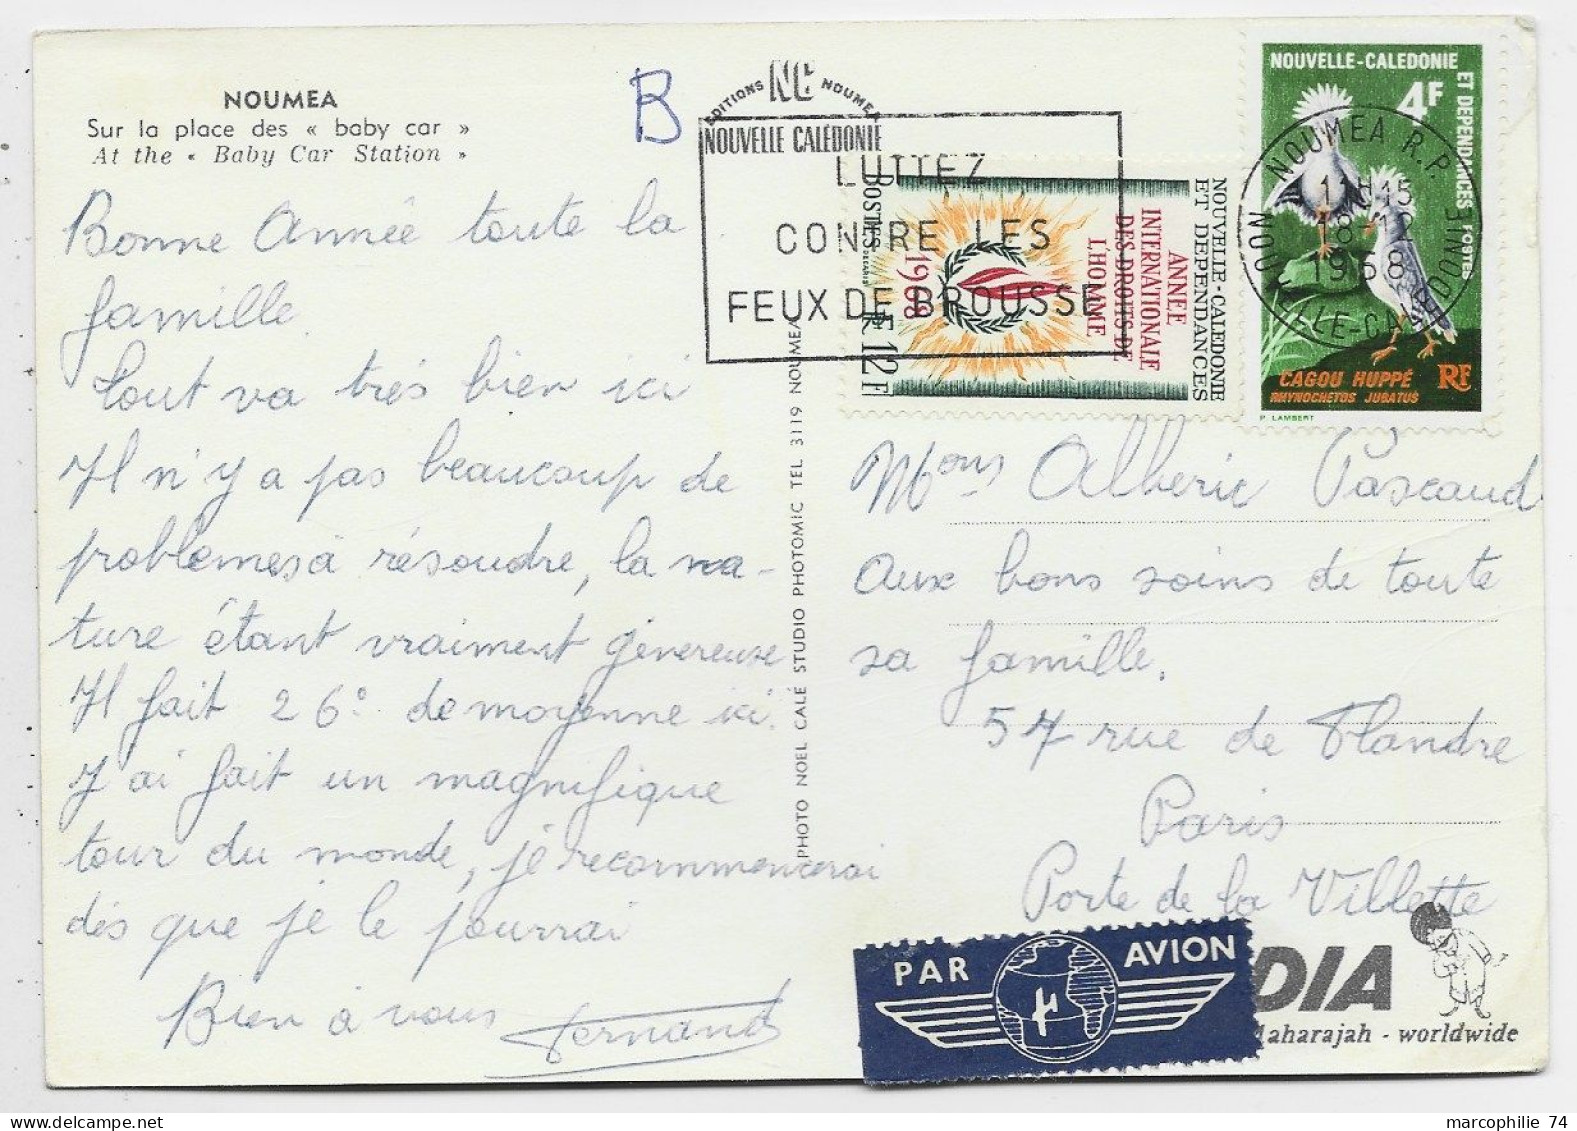 NOUMEA
Sur la place des « baby car »
At the « Baby Car Station »
B
EDITIONS NC NOUMEA
NOUVELLE CALÉDONIE
LUTTEZ
CONTRE LES
FEUX DE BROUSSE
NOUVELLE-CALEDONIE
ET DEPENDANCES
ANNEE
INTERNATIONALE
DES DROITS DE
L'HOMME
1968
POSTES
12F
NOUVELLE-CALEDONIE
ET DEPENDANCES POSTES
4F
CAGOU HUPPÉ
RHYNOCHETOS JUBATUS
RF
P. LAMBERT
NOUMEA R.P.
11H15
18 12
1968
NOUVELLE-CALEDONIE
Bonne Année toute la
famille
Tout va très bien ici
Il n'y a pas beaucoup de
problemes à résoudre, la na-
ture étant vraiment génereuse
Il fait 26° de moyenne ici.
J'ai fait un magnifique
tour du monde, je recommencerai
dés que je le pourrai
Bien à vous Fernand
PHOTO NOEL CALÉ STUDIO PHOTOMIC TEL 3119 NOUMEA
Mons Alberic Pascaud
aux bons soins de toute
sa famille.
57 rue de Flandre
Paris
Porte de la Villette
PAR AVION
DIA
aharajah - worldwide
marcophilie 74